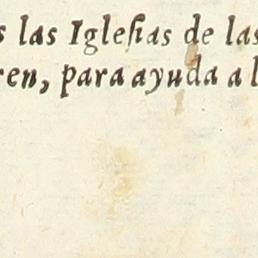 s las Iglesias de las
ren, para ayuda a l